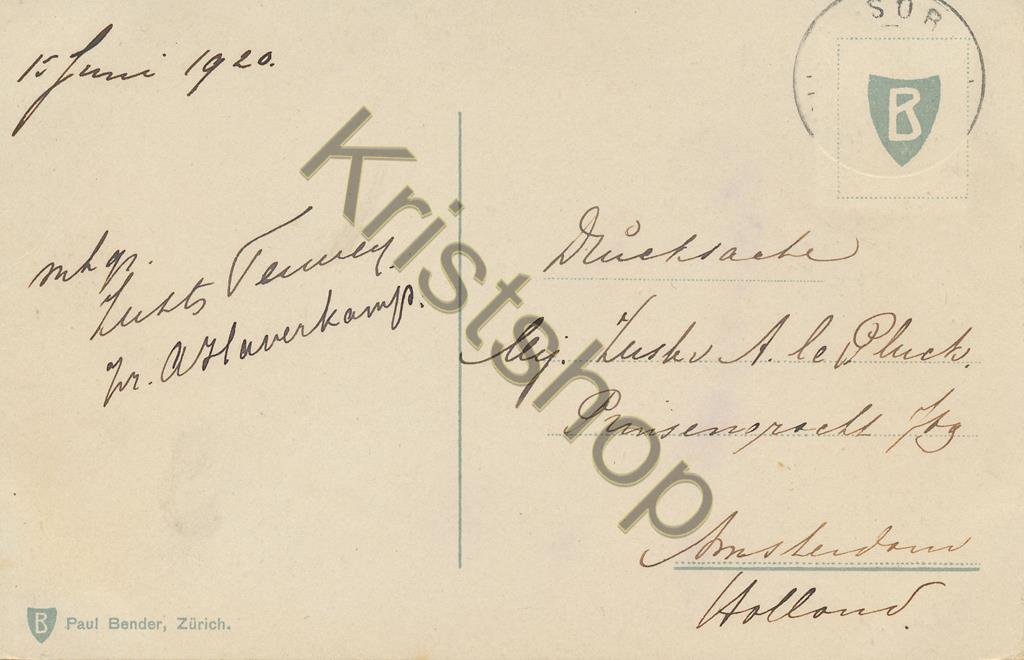 15 Juni 1920.
SOR
B
m h gr.
Zusts
Zr. A Haverkamp.
Drucksache
Mej. Zuster A. le Pluck.
Prinsengracht
Amsterdam
Holland.
Kristshop
B Paul Bender, Zürich.